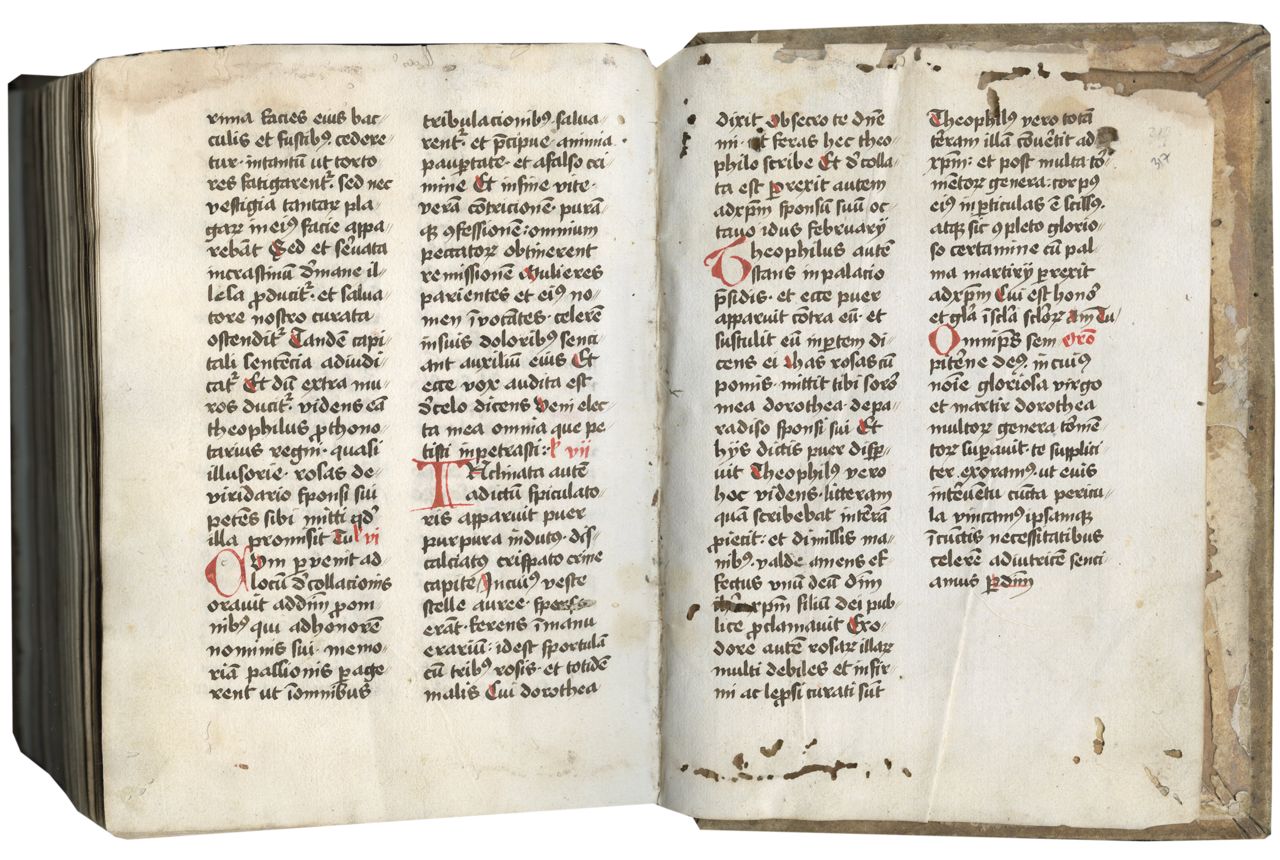 rinia facies eius bac//
culis et fustibꝫ cedere//
tur · intantū ut torto//
res fatigarentᷣ. sed nec
vestigia tantaꝝ pla//
gaꝝ in eiꝰ facie appa//
rebāt Sed et seruata
incrastinū d'mane il//
lesa ꝓducitᷣ · et salua//
tore nostro curata
ostenditᷣ Tandē capi//
tali sentencia adiudi//
catᷣ Et dū extra mu//
ros ducitᷣ. videns eā
theophilus ꝓthono//
tarius regni · quasi
illusorie · rosas de//
viridario sponsi sui
petēs sibi mitti qd'
illa promisit Tu l' vi
Cum ꝑvenit ad
locū d'collacionis
oravit addn̄m ꝓ om//
nibꝰ qui adhonorē
nominis sui · memo//
riā passionis ꝑage//
rent ut ī omnibus
tribulacionibꝰ salua//
rentᷣ. et p̄cipue · aīmia
pauꝑtate · et afalso cri//
mine Et infine vite ·
verā cōtricionē · purā//
qꝫ ꝯfessionē : omnium
peccatoꝝ obtinerent
remissionē Mulieres
parientes et eiꝰ no//
men īvocātes · celerē
insuis doloribꝰ senci//
ant auxiliū eius Et
ecce vox audita est
d'celo dicens Veni elec//
ta mea omnia que pe
tisti inpetrasti : l' vii
INclinata autē
adictū spiculato//
ris apparuit puer
purpura indutꝰ · dis//
calciatꝰ crispato crine
capite Incuiꝰ veste
stelle auree
erāt · ferens ī manu
erarium : idest sportulā
cū tribꝰ rosis · et totidē
malis Cui dorothea//
dixit Obsecro te dn̄e
mi · ut feras hec theo//
philo scribe Et d'colla//
ta est ꝑrexit autem
adxp̄m sponsū suū oc//
tavo idus february
Theophilus autē
stans inpalacio
p̄sidis · et ecce puer
apparuit cōtra eū · et
sustulit eū inꝑtem di//
cens ei has rosas cū
pomis · mittit tibi soror
mea dorothea · depa//
radiso sponsi sui Et
hys dictis puer dispꝑ//
uit Theophilꝰ vero
hec videns · litteram
quā scribebat interrā
ꝓiecit : et dimissis ma//
nibꝰ. valde amens ef//
fectus unū deū dn̄m
xp̄m filiū dei pub//
lice ꝓclamauit Exo//
dore autē rosaꝝ illaꝝ
multi debiles et infir//
mi ac leꝓsi curati sūt
Theophilꝰ vero totā
terram illā cōvertit ad//
xp̄m : et post multa tor//
mentoꝝ genera : corpꝰ
eiꝰ inꝑticulas ē scissū.
atqꝫ sic ꝯpleto glorio//
so certamine cū pal//
ma martiry ꝑrexit
adxp̄m Cui est honor
et gl̄a ī scl̄a scl̄oꝝ Am Tu
Omnip̄s sem Oro
piterne deꝰ. in cuius
noīe gloriola virgo
et martir dorothea
multoꝝ genera tormē//
toꝝ suꝑauit · te supplici//
ter exoramꝰ. ut euis
interuētu cūcta pericu//
la vincamꝰ ipsamqꝫ
ī cūctis necessitatibus
celerē adiutricē senci//
amus ꝑ dn̄m